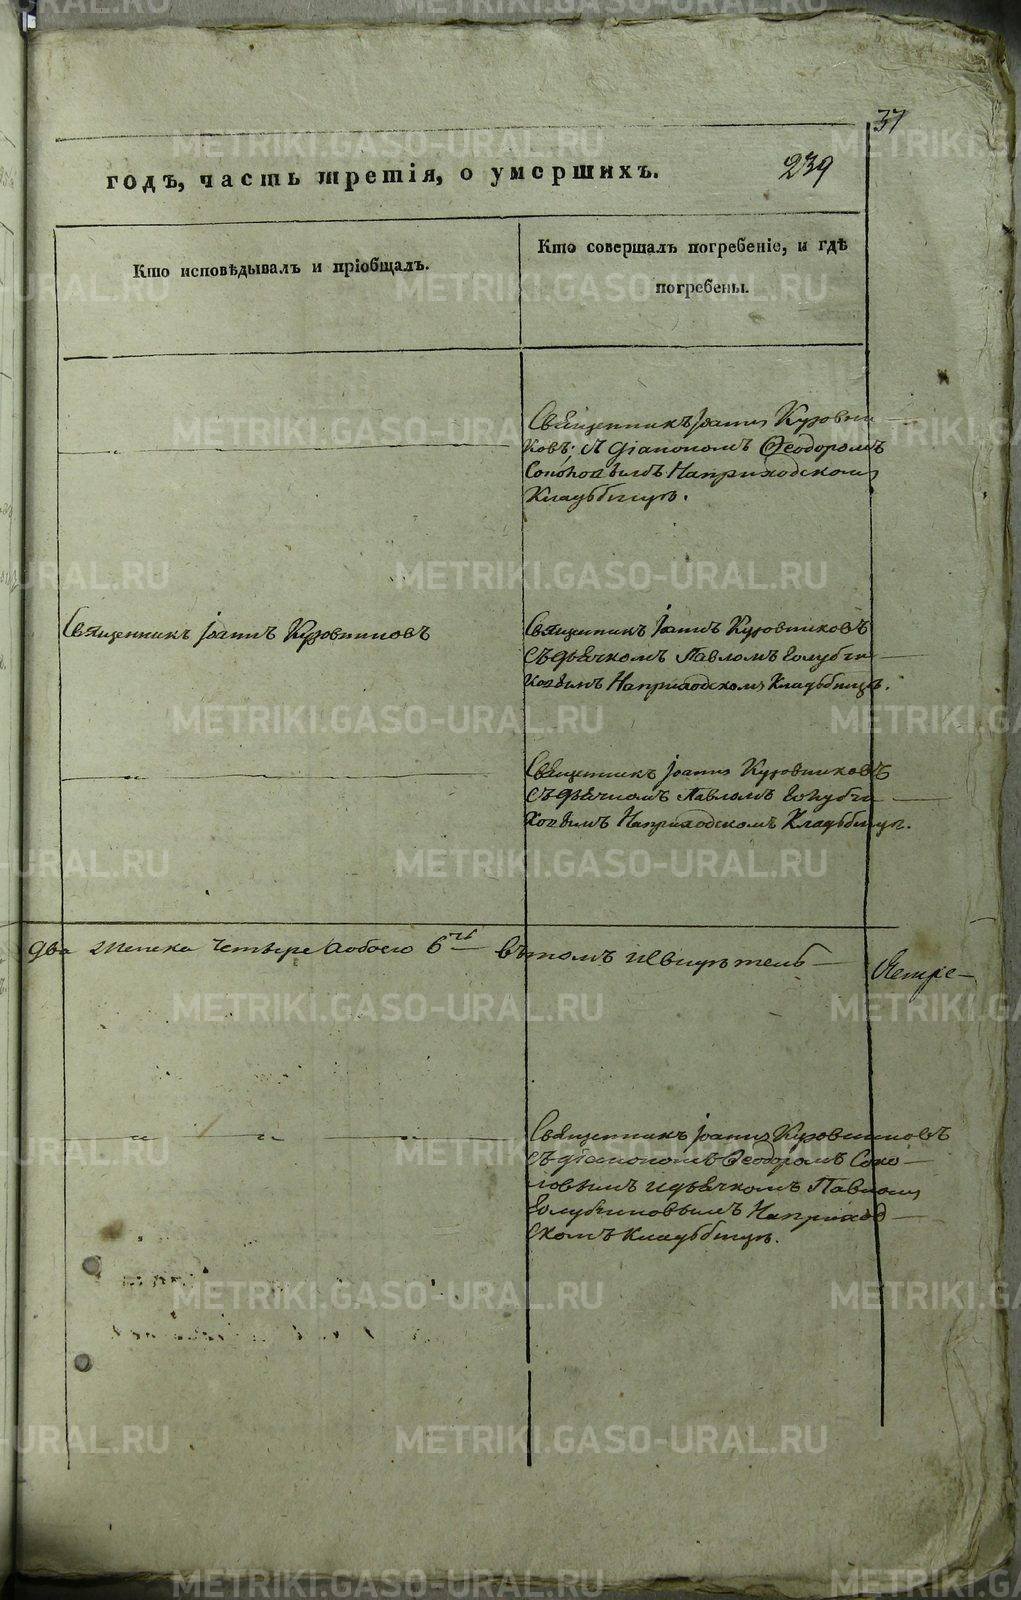 37
239
годъ, часть третія, о умершихъ.
Кто исповѣдывалъ и пріобщалъ.
Кто совершалъ погребеніе, и гдѣ
погребены.
Священникъ Іоаннъ Кузовни
ковъ съ Діакономъ Ѳеодоромъ
Соколовымъ На приходскомъ
Кладбищѣ.
Священникъ Іоаннъ Кузовниковъ
Священникъ Іоаннъ Кузовниковъ
съ дьячкомъ Павломъ Голубчи
ковымъ На приходскомъ Кладбищѣ.
Священникъ Іоаннъ Кузовниковъ
съ дьячкомъ Павломъ Голубчи
ковымъ На приходскомъ Кладбищѣ.
два женска четыре а обоего 6ть въ томъ и свидѣтель
Священникъ Іоаннъ Кузовниковъ
съ діакономъ Ѳеодоромъ Соко
ловымъ и дьячкомъ Павломъ
Голубчиковымъ На приход
скомъ кладбищѣ.
METRIKI.GASO-URAL.RU